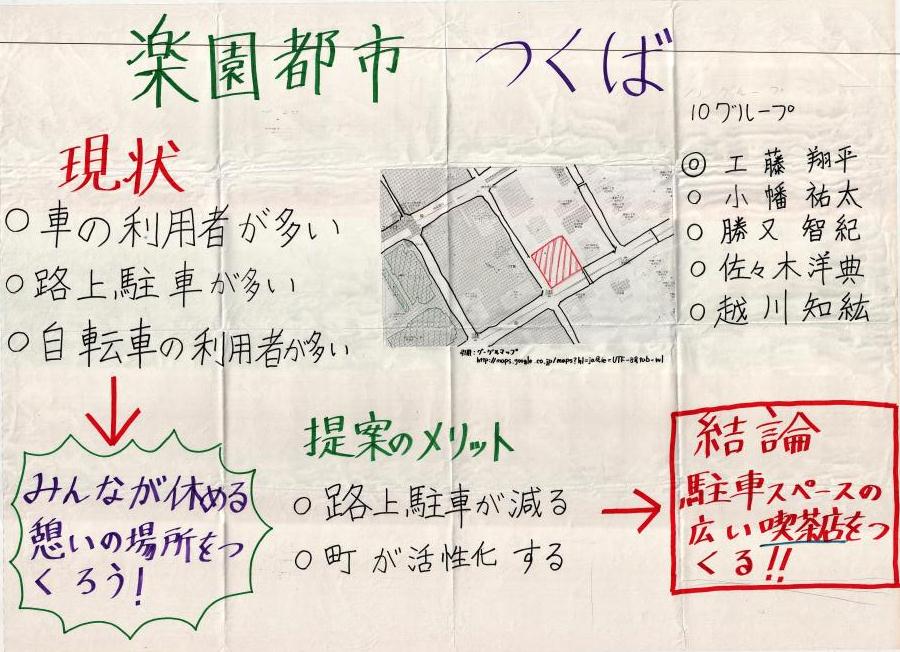 楽園都市 つくば
10グループ
◎ 工藤 翔平
○ 小幡 祐太
○ 勝又 智紀
○ 佐々木洋典
○ 越川知紘
現状
○ 車の利用者が多い
○ 路上駐車が多い
○ 自転車の利用者が多い
引用:グーグルマップ
http://maps.google.co.jp/maps?hl=ja&ie=UTF-8&tab=wl
みんなが休める
憩いの場所をつ
くろう!
提案のメリット
○ 路上駐車が減る
○ 町が活性化する
結論
駐車スペースの
広い喫茶店をつ
くる!!